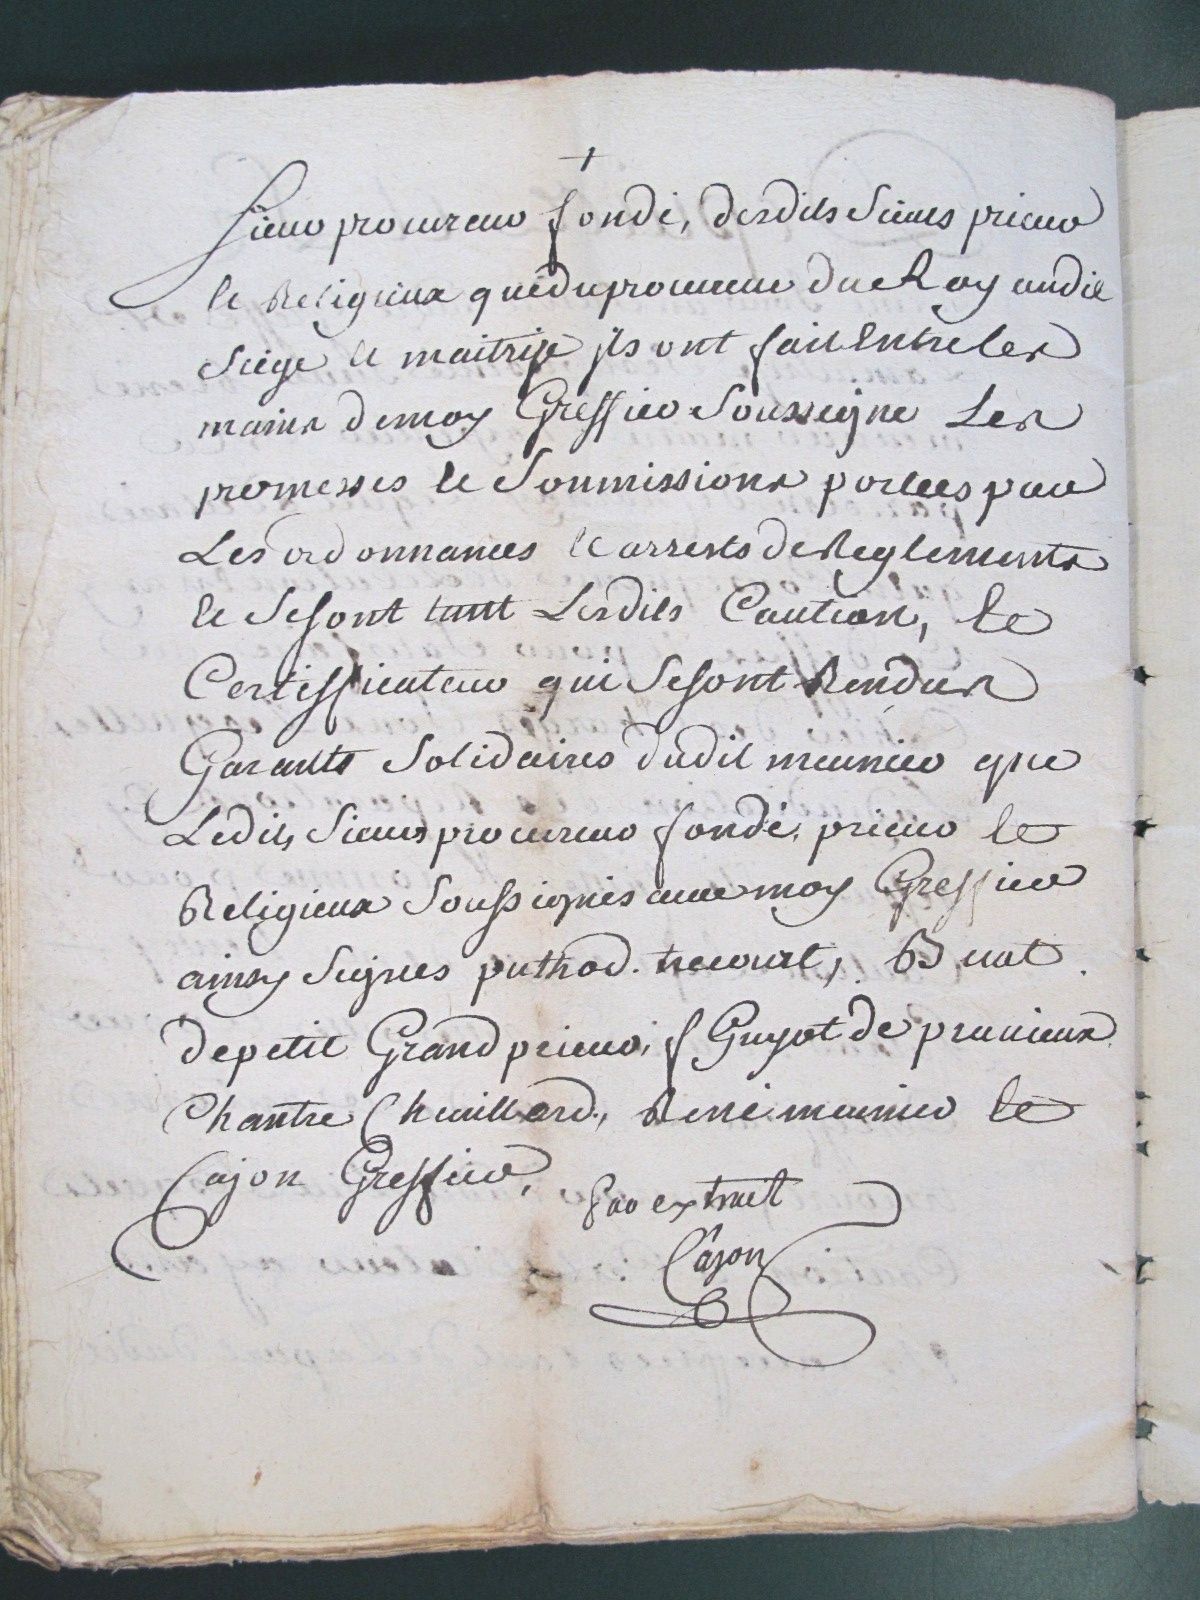 +
Sieur procureur fondé, desdits Sieurs prieur
et Religieux que du procureur du Roy audit
Siege et maitrise ils ont fait Entre les
mains de moy Greffier Soussigne Les
promesses et Soumissions portees par
Les ordonnances et arrests de Reglements
et Se Sont tant Lesdits Caution, et
Certifficateur qui Se Sont Rendus
Garants Solidaires dudit meunier que
Ledits Sieurs procureur fondé, prieur et
Religieux Soussignés avec moy Greffier
ainsy Signes puthod. trecourt,
de petit Grand prieur, f Guyot de prunieux
Chantre Chaillard, René meunier et
Cajon Greffier,
Par extrait
Cajon